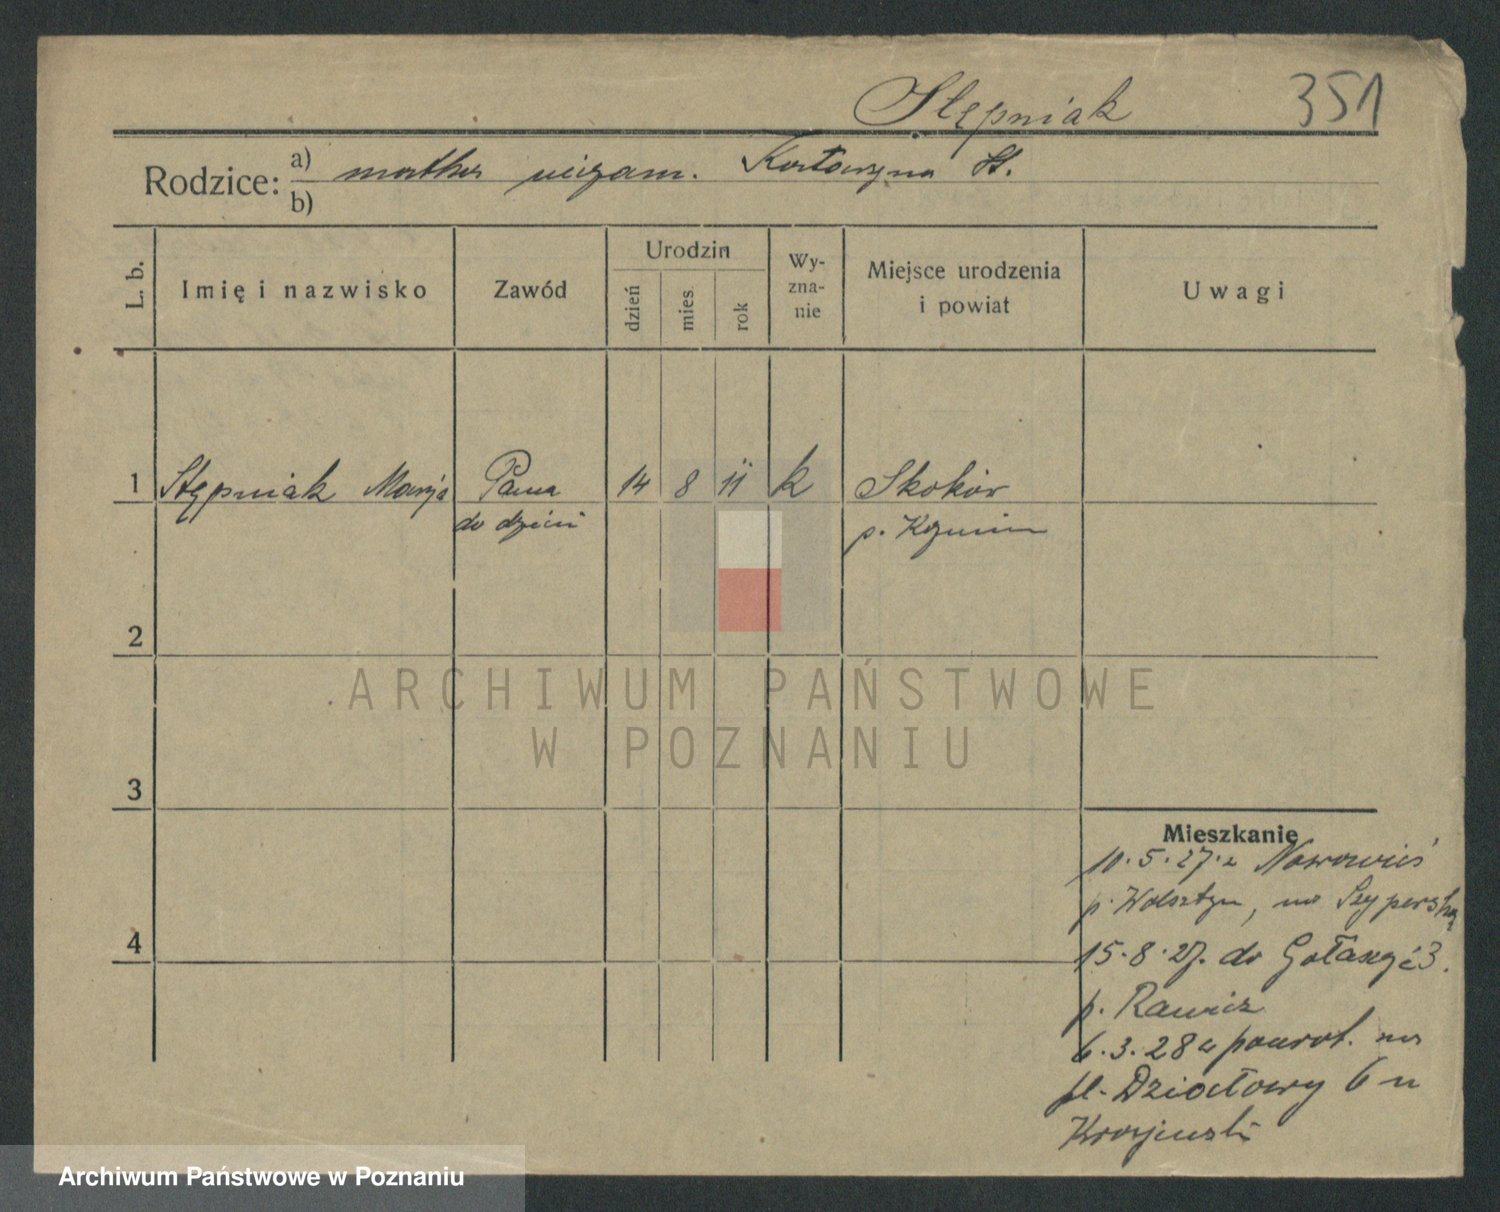 Stępniak 351
Rodzice: a) matka niezam. Katarzyna St.
b)
L. b. Imię i nazwisko Zawód Urodzin dzień mies. rok Wy-zna-nie Miejsce urodzenia i powiat Uwagi
1 Stępniak Marja Panna 14 8 11 k Skoków
do dzieci p.
2
3
4
Mieszkanie
10.5.27 z Nowawieś
p. Wolsztyn, na Szyperską
15.8.27. do
p. Rawicz
6.3.28 powrot. na
pl. Działowy 6 u
ARCHIWUM PAŃSTWOWE
W POZNANIU
Archiwum Państwowe w Poznaniu